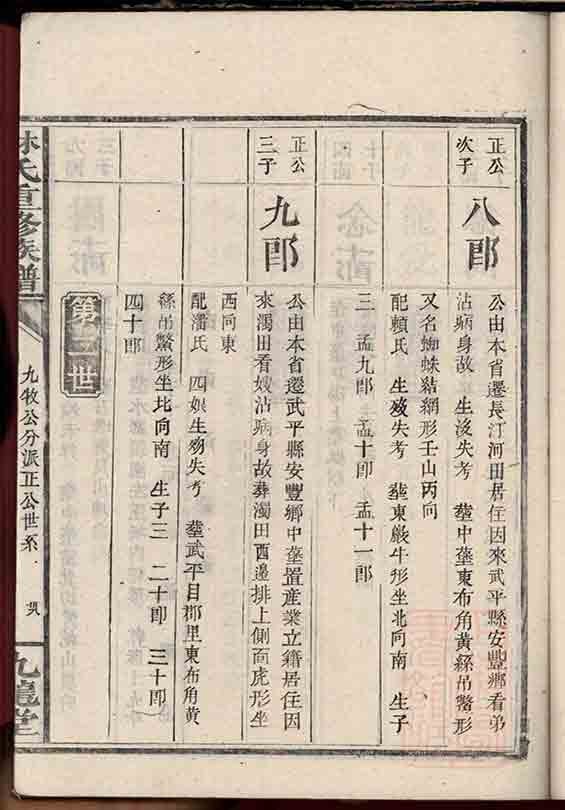 正公
次子
八郎
公由本省遷長汀河田居住因來武平縣安豐鄉看弟
沾病身故 生没失考 葬中葬東布角黃絲吊鱉形
又名蜘蛛黏網形壬山丙向
配賴氏 生殁失考 葬東嚴牛形坐北向南 生子
三 孟九郎 孟十郎 孟十一郎
正公
三子
九郎
公由本省遷武平縣安豐鄉中葬置産業立籍居住因
來濁田看嫂沾病身故葬濁田西邊排上側面虎形坐
西向東
配潘氏 四娘生殁失考 葬武平目郡里東布角黃
絲吊鱉形坐北向南 生子三 二十郎 三十郎
四十郎
第三世
林氏重修族譜
九牧公分派正公世系
九龍堂